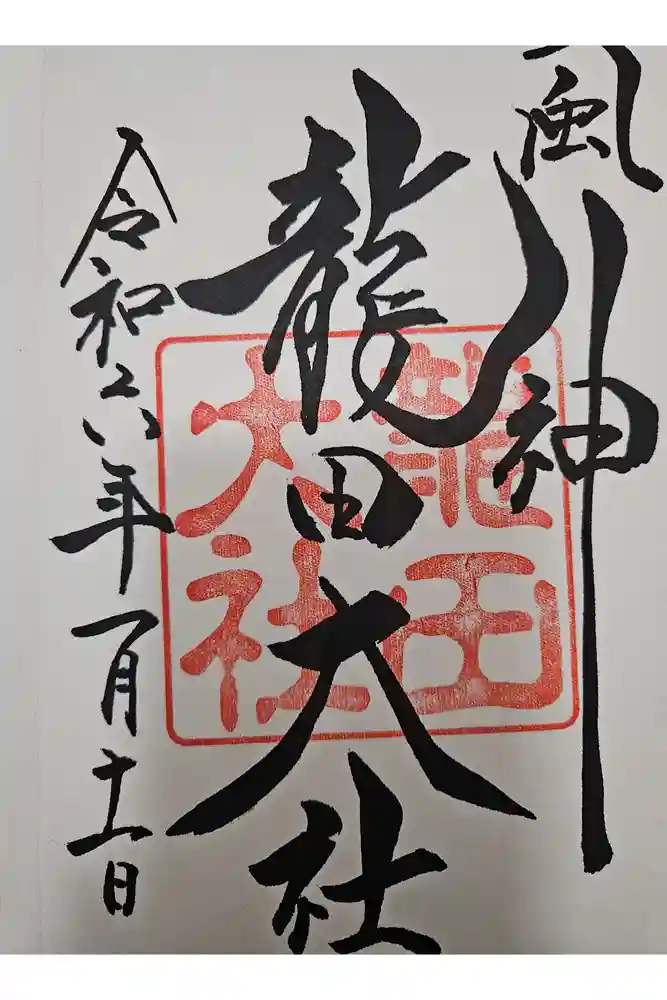 風神
龍田大社
龍田
大社
令和六年一月十一日